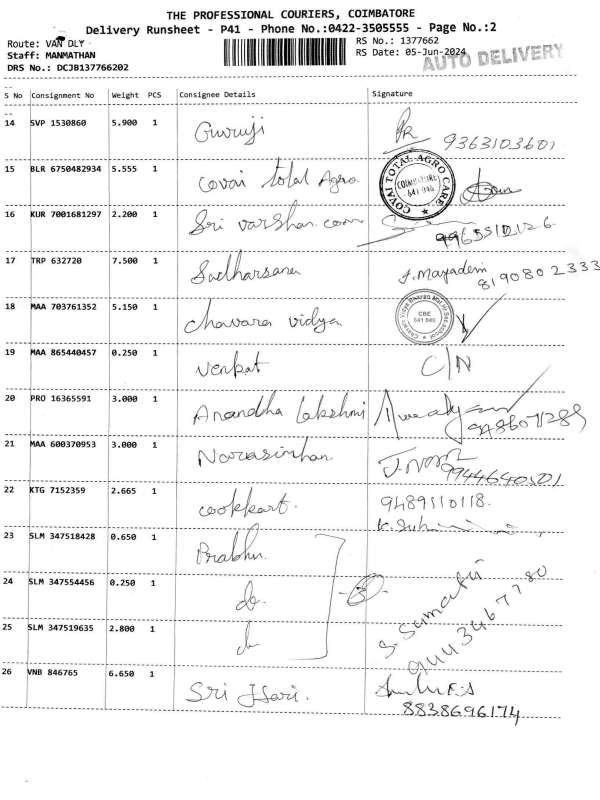 THE PROFESSIONAL COURIERS, COIMBATORE
Delivery Runsheet - P41 - Phone No.:0422-3505555 - Page No.:2
Route: VAN DLY
RS No.: 1377662
Staff: MANMATHAN
RS Date: 05-Jun-2024
AUTO DELIVERY
DRS No.: DCJB137766202
S No Consignment No Weight PCS Consignee Details Signature
14 SVP 1530860 5.900 1 Guruji
9363103601
15 BLR 6750482934 5.555 1 covai total Agro
COVAI TOTAL AGRO CARE
COIMBATORE
641 046
16 KUR 7001681297 2.200 1 Sri varshan com
9965510126
17 TRP 632720 7.500 1 Sudharsana
8190802333
18 MAA 703761352 5.150 1 chavara vidya
CBE
641 046
19 MAA 865440457 0.250 1 Venkat C/N
20 PRO 16365591 3.000 1 Anandha Lakshmi
9486071289
21 MAA 600370953 3.000 1 Narasimhan
9944640501
22 KTG 7152359 2.665 1 cookkart.
9489510118.
23 SLM 347518428 0.650 1 Prabhu.
24 SLM 347554456 0.250 1 do.
S. Sumathi
9443467780
25 SLM 347519635 2.800 1
26 VNB 846765 6.650 1 Sri Hari.
8838696174